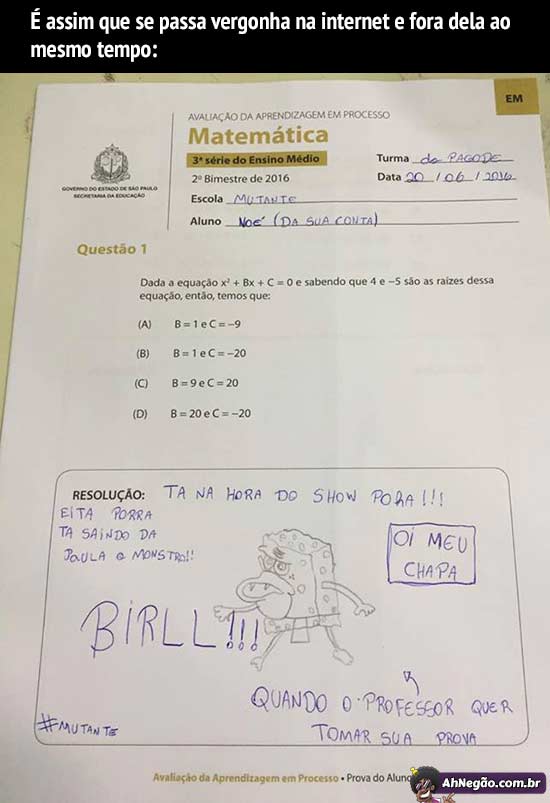 É assim que se passa vergonha na internet e fora dela ao
mesmo tempo:
EM
AVALIAÇÃO DA APRENDIZAGEM EM PROCESSO
Matemática
3ª série do Ensino Médio
Turma do PAGODE
2º Bimestre de 2016
Data 20 / 06 / 2016
GOVERNO DO ESTADO DE SÃO PAULO
SECRETARIA DA EDUCAÇÃO
Escola MUTANTE
Aluno NOÉ (DA SUA CONTA)
Questão 1
Dada a equação x² + Bx + C = 0 e sabendo que 4 e −5 são as raízes dessa
equação, então, temos que:
(A) B = 1 e C = −9
(B) B = 1 e C = −20
(C) B = 9 e C = 20
(D) B = 20 e C = −20
RESOLUÇÃO: TA NA HORA DO SHOW PORA!!!
EITA PORRA
TA SAINDO DA
JAULA O MONSTRO!!
OI MEU
CHAPA
BIRLL!!!
QUANDO O PROFESSOR QUER
TOMAR SUA PROVA
#MUTANTE
Avaliação da Aprendizagem em Processo • Prova do Aluno
AhNegão.com.br